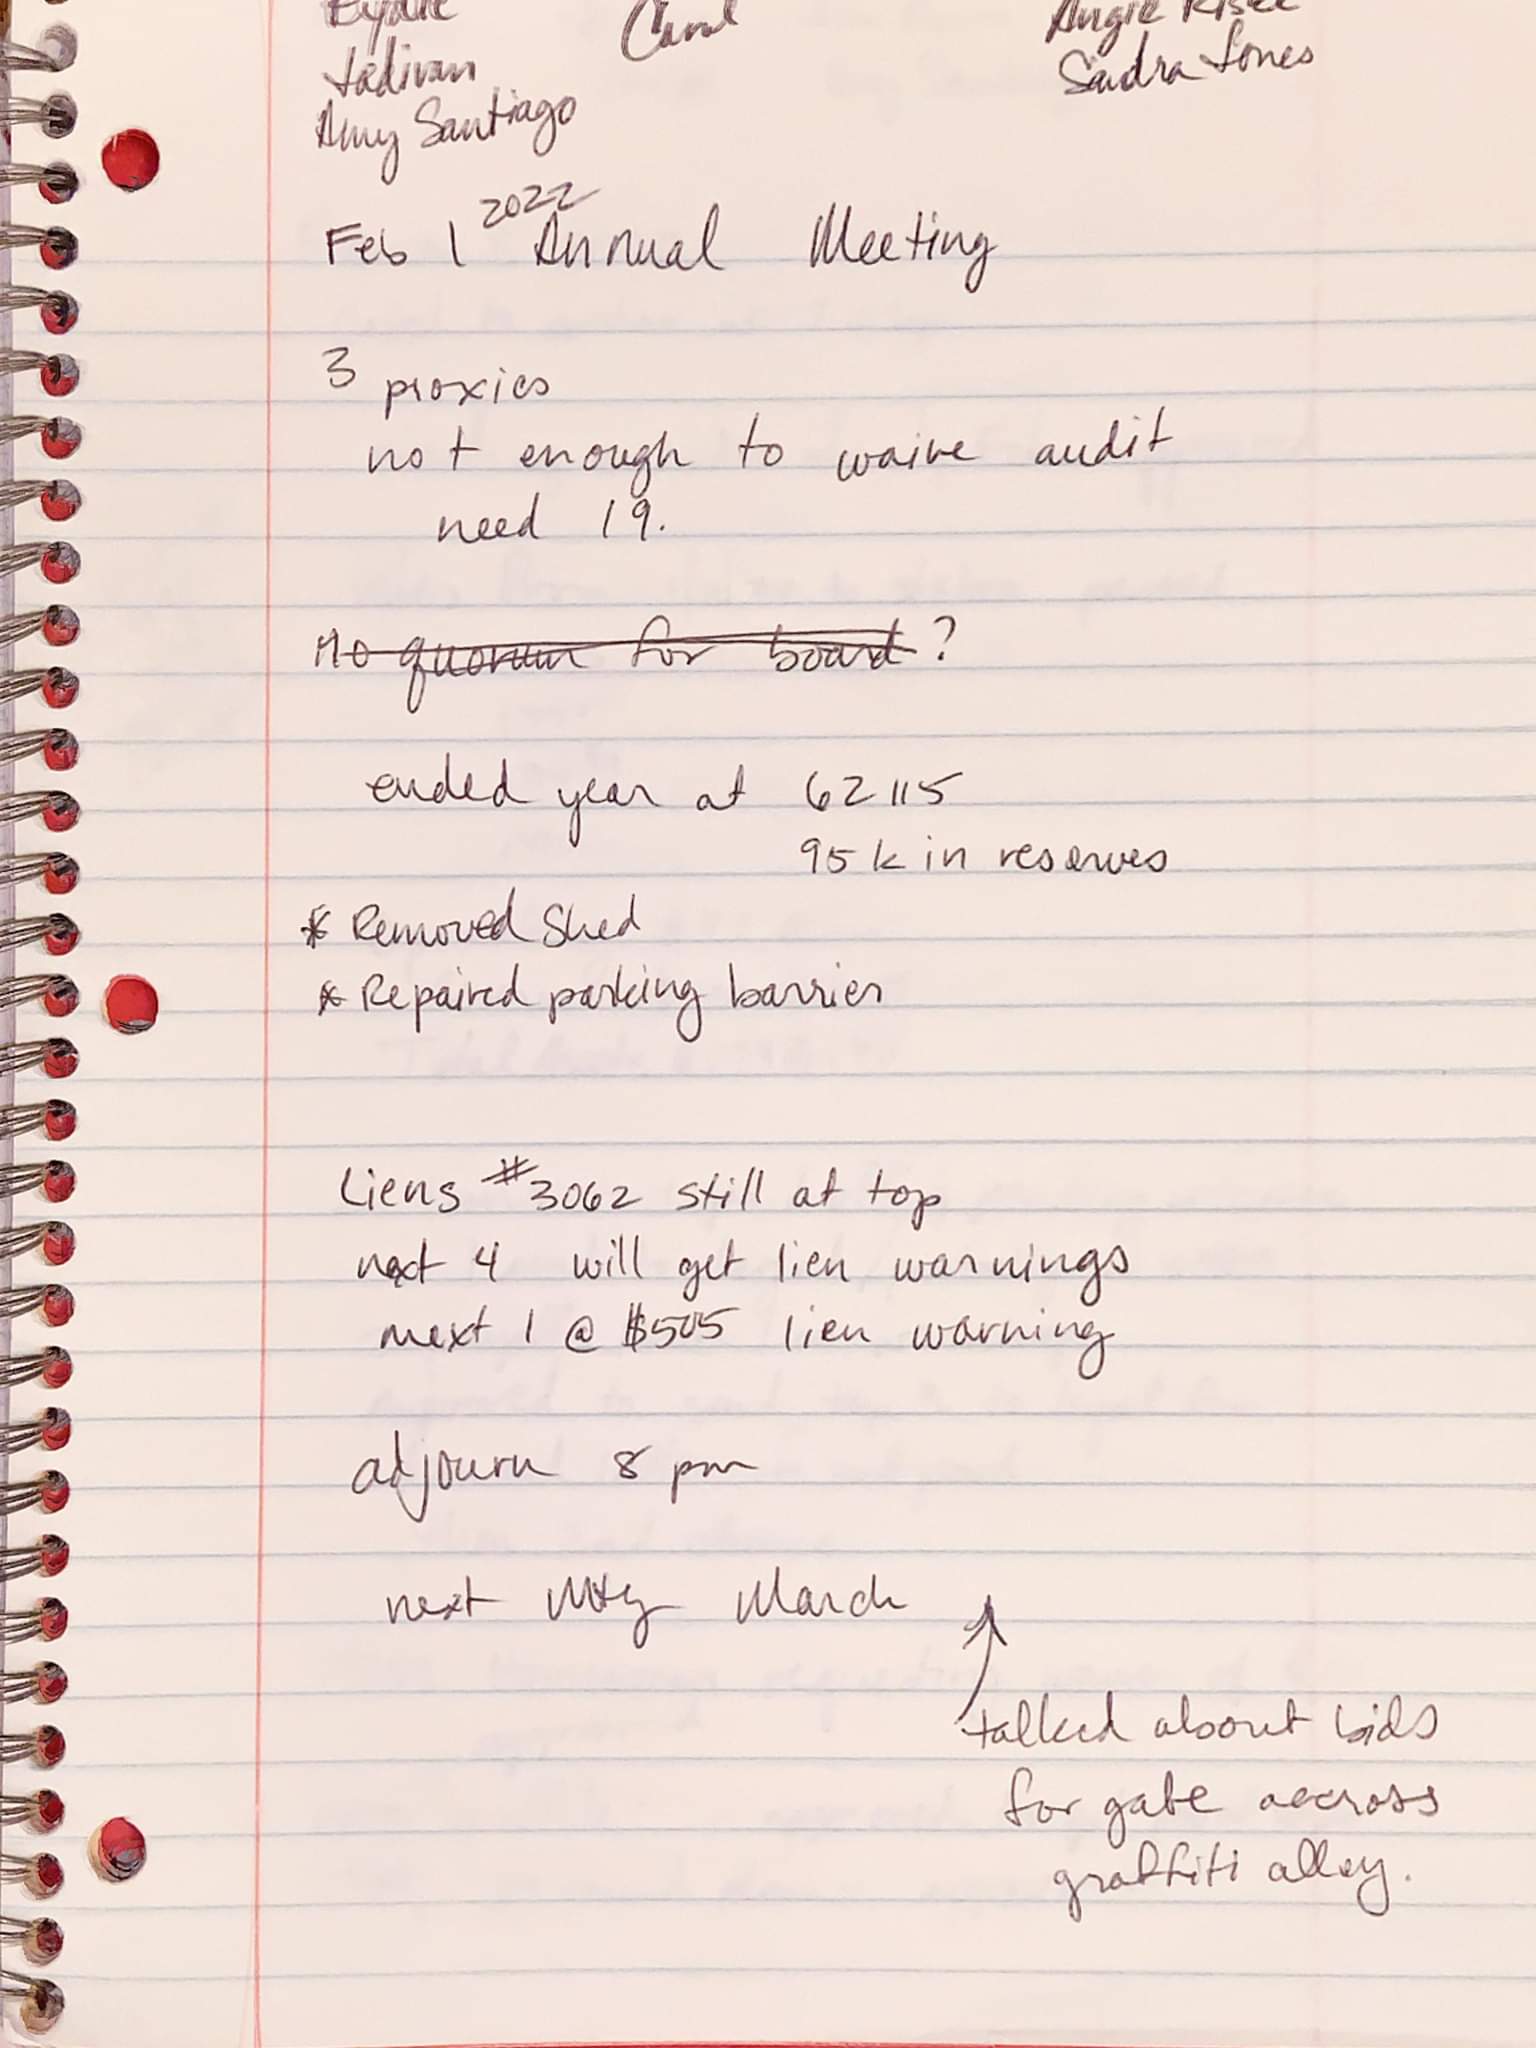 Carol
Amy Santiago
Sandra Jones
Feb 1 2022 Annual Meeting
3 proxies
not enough to waive audit
need 19.
No quorum for board ?
ended year at 62115
95k in reserves
* Removed Shed
* Repaired parking barrier
Liens #3062 still at top
next 4 will get lien warnings
next 1 @ $505 lien warning
adjourn 8 pm
next Mtg March
talked about bids
for gate accross
graffiti alley.